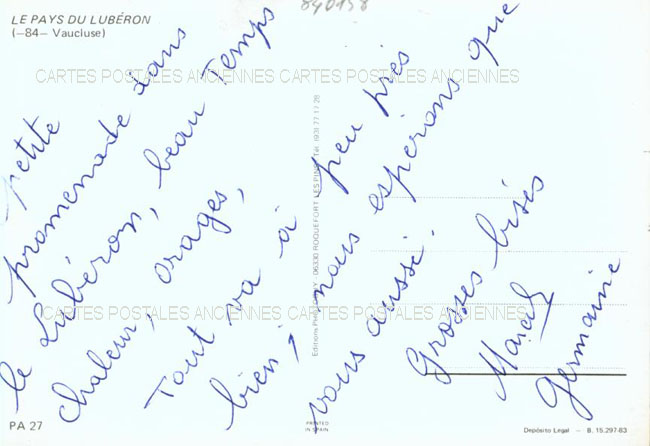 840158
LE PAYS DU LUBÉRON
(–84– Vaucluse)
CARTES POSTALES ANCIENNES CARTES POSTALES ANCIENNES
petite
promenade dans
le Lubéron, beau Temps
chaleur, orages,
Tout va à peu près
bien, nous espérons que
vous aussi.
Grosses bises
Marcel
Germaine
CARTES POSTALES ANCIENNES CARTES POSTALES ANCIENNES
06330 ROQUEFORT LES PINS Tél. (93) 77 17 28
PA 27
PRINTED
IN SPAIN
Depósito Legal – B. 15.297-83